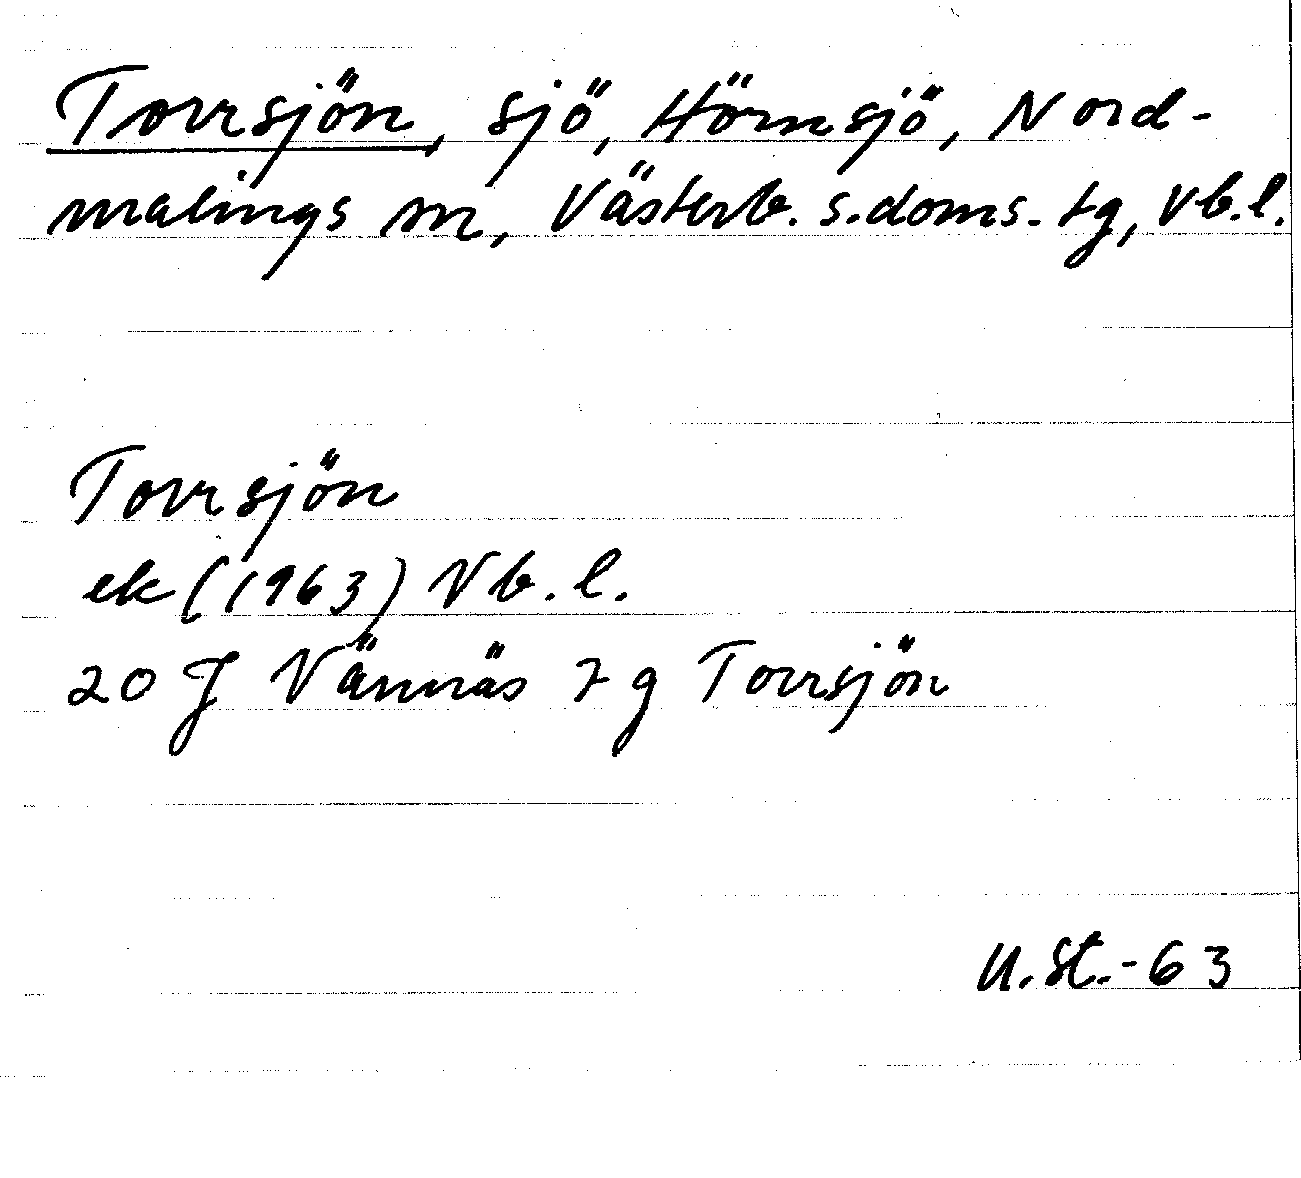 Torrsjön, sjö, Hörnsjö, Nord-
malings sn, Västerb. s. doms. tg, Vb.l.
Torrsjön
ek (1963) Vb.l.
20 J Vännäs 7 g Torrsjön
U.St.-63